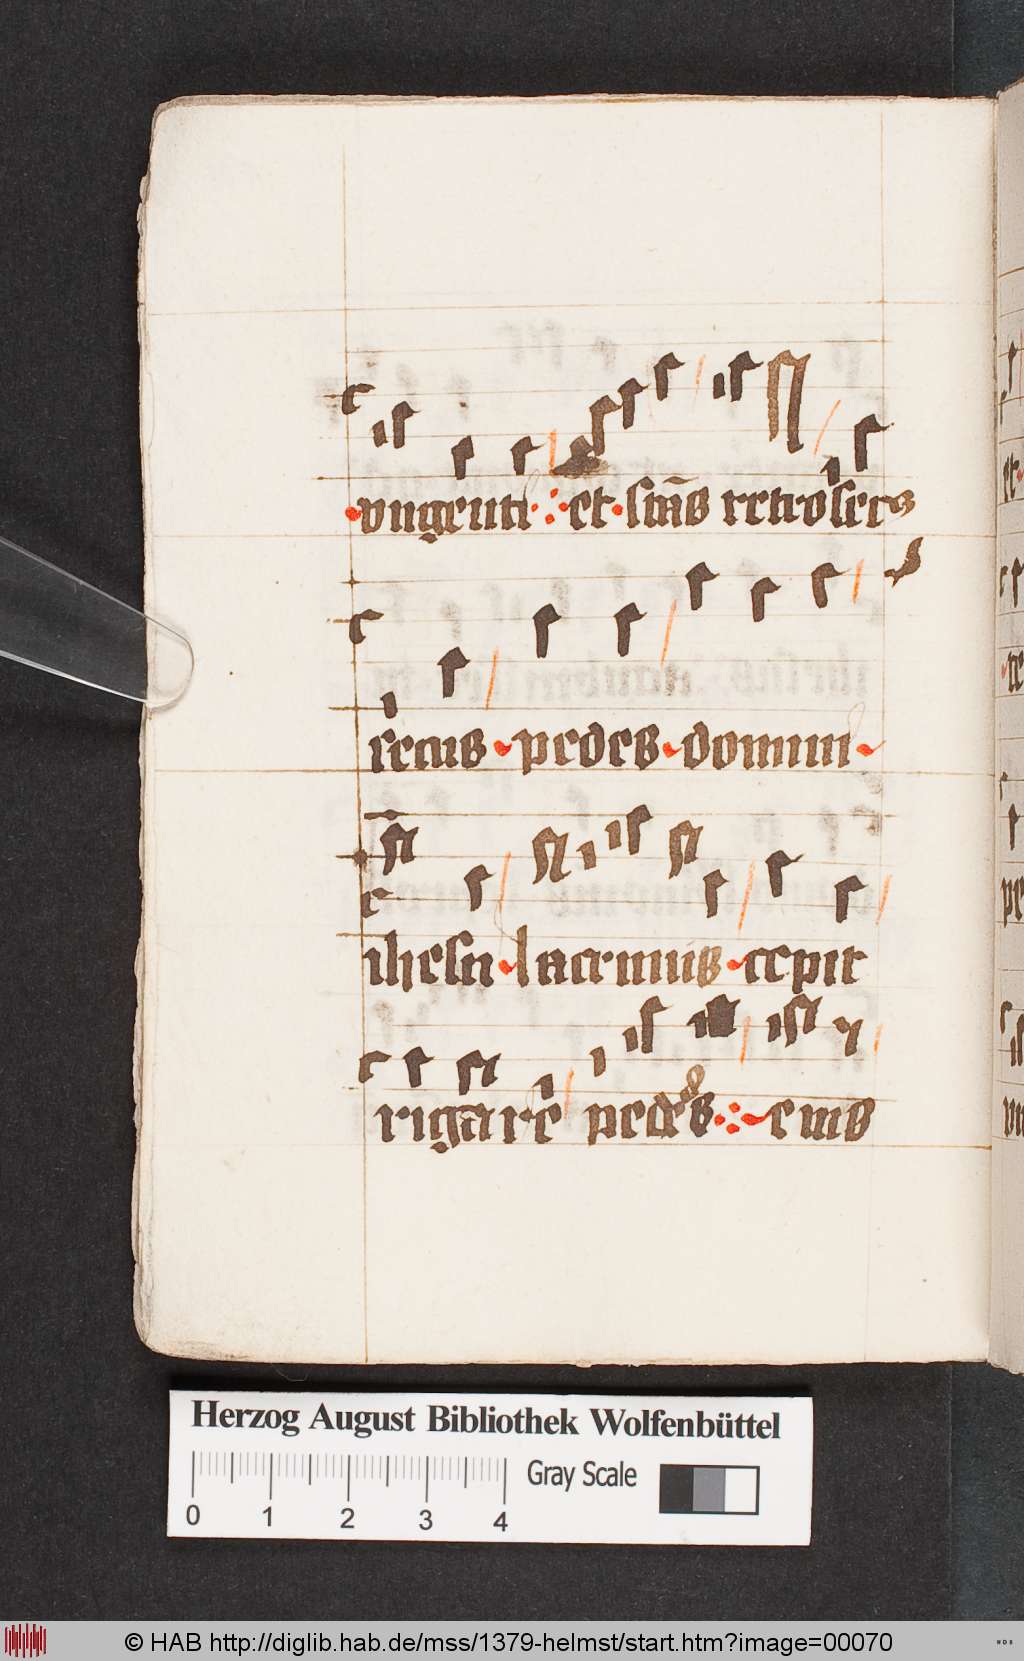 vngenti et stãs retro secꝰ
secus pedes domini
ihesu lacrimis cepit
rigare pedes eius
Herzog August Bibliothek Wolfenbüttel
0 1 2 3 4
Gray Scale
© HAB http://diglib.hab.de/mss/1379-helmst/start.htm?image=00070